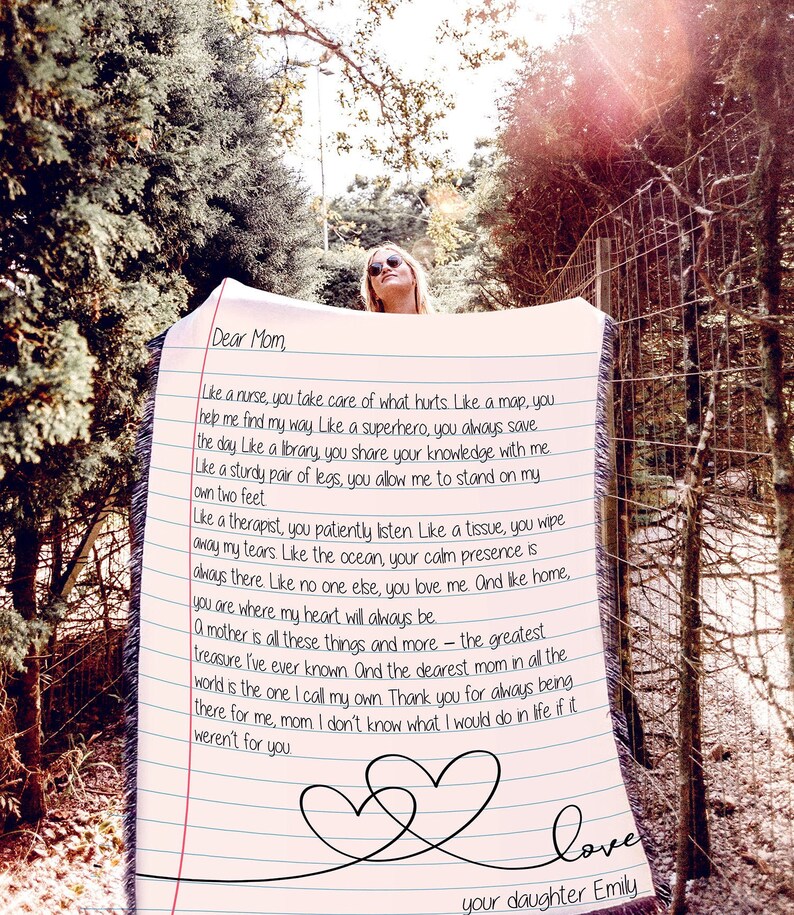 Dear Mom,
Like a nurse, you take care of what hurts. Like a map, you
help me find my way. Like a superhero, you always save
the day. Like a library, you share your knowledge with me.
Like a sturdy pair of legs, you allow me to stand on my
own two feet.
Like a therapist, you patiently listen. Like a tissue, you wipe
away my tears. Like the ocean, your calm presence is
always there. Like no one else, you love me. And like home,
you are where my heart will always be.
A mother is all these things and more – the greatest
treasure I've ever known. And the dearest mom in all the
world is the one I call my own. Thank you for always being
there for me, mom. I don't know what I would do in life if it
weren't for you.
love
your daughter Emily